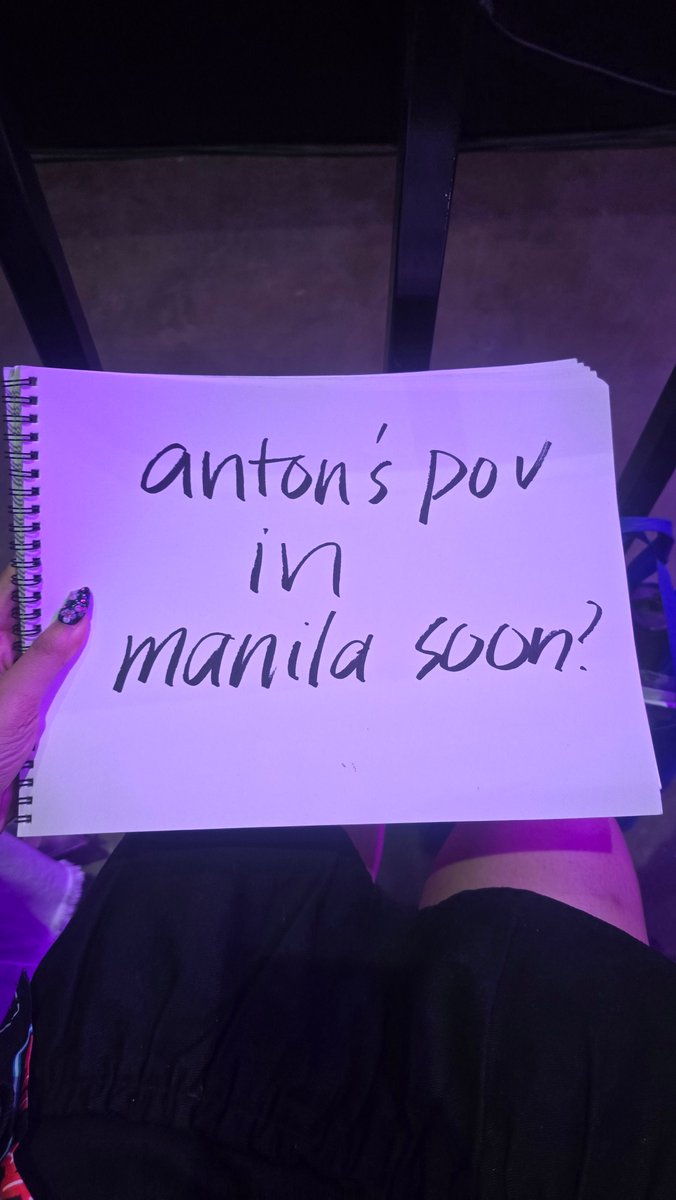 anton's pov
in
manila soon?